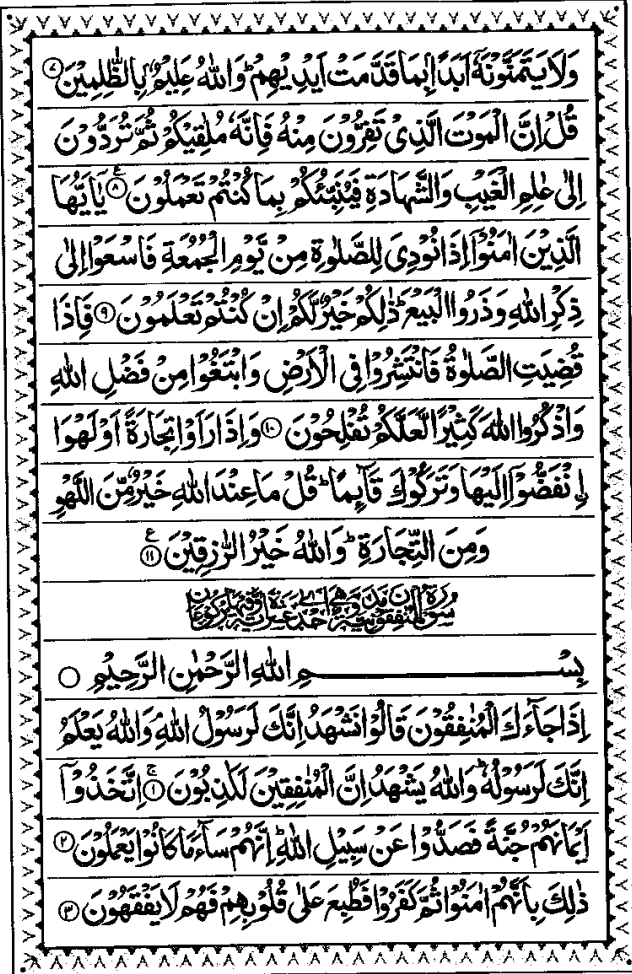 وَلَا يَتَمَنَّوْنَهٗۤ اَبَدًۢا بِمَا قَدَّمَتْ اَيْدِيْهِمْ ؕ وَاللّٰهُ عَلِيْمٌۢ بِالظّٰلِمِيْنَ ۷
قُلْ اِنَّ الْمَوْتَ الَّذِیْ تَفِرُّوْنَ مِنْهُ فَاِنَّهٗ مُلٰقِيْكُمْ ثُمَّ تُرَدُّوْنَ
اِلٰى عٰلِمِ الْغَيْبِ وَالشَّهَادَةِ فَيُنَبِّئُكُمْ بِمَا كُنْتُمْ تَعْمَلُوْنَ ۸ع يٰۤاَيُّهَا
الَّذِيْنَ اٰمَنُوْۤا اِذَا نُوْدِیَ لِلصَّلٰوةِ مِنْ يَّوْمِ الْجُمُعَةِ فَاسْعَوْا اِلٰى
ذِكْرِ اللّٰهِ وَذَرُوا الْبَيْعَ ؕ ذٰلِكُمْ خَيْرٌ لَّكُمْ اِنْ كُنْتُمْ تَعْلَمُوْنَ ۹ فَاِذَا
قُضِيَتِ الصَّلٰوةُ فَانْتَشِرُوْا فِی الْاَرْضِ وَابْتَغُوْا مِنْ فَضْلِ اللّٰهِ
وَاذْكُرُوا اللّٰهَ كَثِيْرًا لَّعَلَّكُمْ تُفْلِحُوْنَ ۱۰ وَاِذَا رَاَوْا تِجَارَةً اَوْ لَهْوَا
۟اِنْفَضُّوْۤا اِلَيْهَا وَتَرَكُوْكَ قَآئِمًا ؕ قُلْ مَا عِنْدَ اللّٰهِ خَيْرٌ مِّنَ اللَّهْوِ
وَمِنَ التِّجَارَةِ ؕ وَاللّٰهُ خَيْرُ الرّٰزِقِيْنَ ۱۱ع
بِسْمِ اللّٰهِ الرَّحْمٰنِ الرَّحِيْمِ ○
اِذَا جَآءَكَ الْمُنٰفِقُوْنَ قَالُوْا نَشْهَدُ اِنَّكَ لَرَسُوْلُ اللّٰهِ ۘ وَاللّٰهُ يَعْلَمُ
اِنَّكَ لَرَسُوْلُهٗ ؕ وَاللّٰهُ يَشْهَدُ اِنَّ الْمُنٰفِقِيْنَ لَكٰذِبُوْنَ ۱ۚ اِتَّخَذُوْۤا
اَيْمَانَهُمْ جُنَّةً فَصَدُّوْا عَنْ سَبِيْلِ اللّٰهِ ؕ اِنَّهُمْ سَآءَ مَا كَانُوْا يَعْمَلُوْنَ ۲
ذٰلِكَ بِاَنَّهُمْ اٰمَنُوْا ثُمَّ كَفَرُوْا فَطُبِعَ عَلٰى قُلُوْبِهِمْ فَهُمْ لَا يَفْقَهُوْنَ ۳